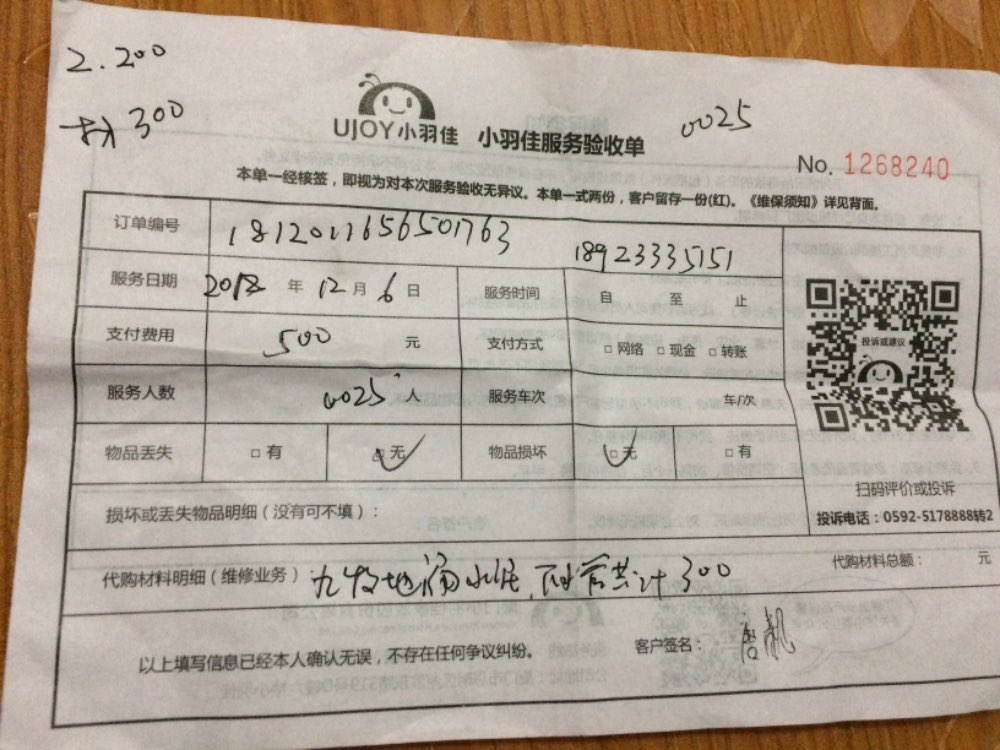 2.200
300
UJOY小羽佳 小羽佳服务验收单
0025
No. 1268240
本单一经核签，即视为对本次服务验收无异议。本单一式两份，客户留存一份(红)。《维保须知》详见背面。
订单编号 1812011656501763 18923335151
服务日期 2018 年 12 月 6 日 服务时间 自 至 止
支付费用 500 元 支付方式 □ 网络 □ 现金 □ 转账
投诉或建议
服务人数 0025 人 服务车次 车/次
物品丢失 □ 有 □ 无 物品损坏 □ 无 □ 有
扫码评价或投诉
损坏或丢失物品明细（没有可不填）：
投诉电话：0592-5178888转2
代购材料明细（维修业务）： 地漏水泥 共计300
代购材料总额： 元
以上填写信息已经本人确认无误，不存在任何争议纠纷。 客户签名：